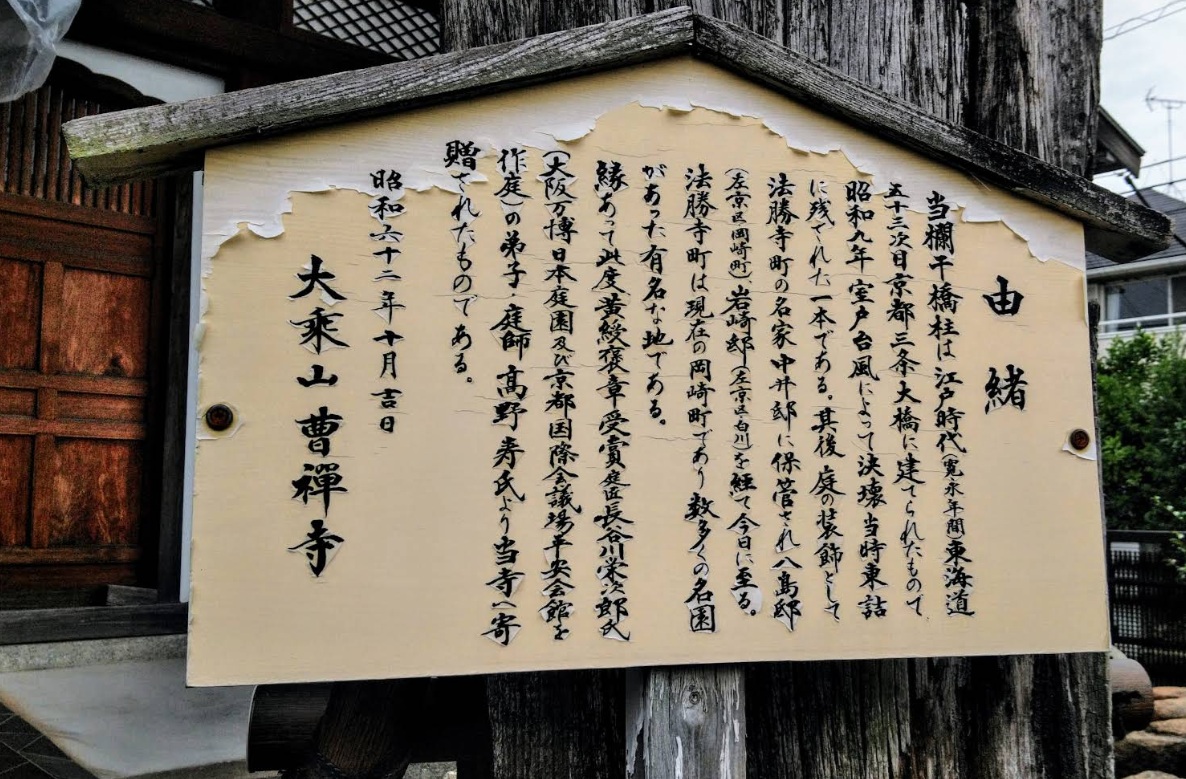 由緒
当欄干橋柱は江戸時代(寛永年間)東海道
五十三次目京都三条大橋に建てられたもので
昭和九年室戸台風によって決壊当時東詰
に残された一本である。其後庭の装飾として
法勝寺町の名家中井邸に保管され八島邸
(左京区岡崎町)、岩崎邸(左京区白川)を経て今日に至る。
法勝寺町は現在の岡崎町であり数多くの名園
があった有名な地である。
縁あって此度黄綬褒章受賞庭匠長谷川栄次郎氏
(大阪万博日本庭園及び京都国際会議場平安会館を
作庭)の弟子庭師高野寿氏より当寺へ寄
贈されたものである。
昭和六十二年十月吉日
大乘山曹禪寺